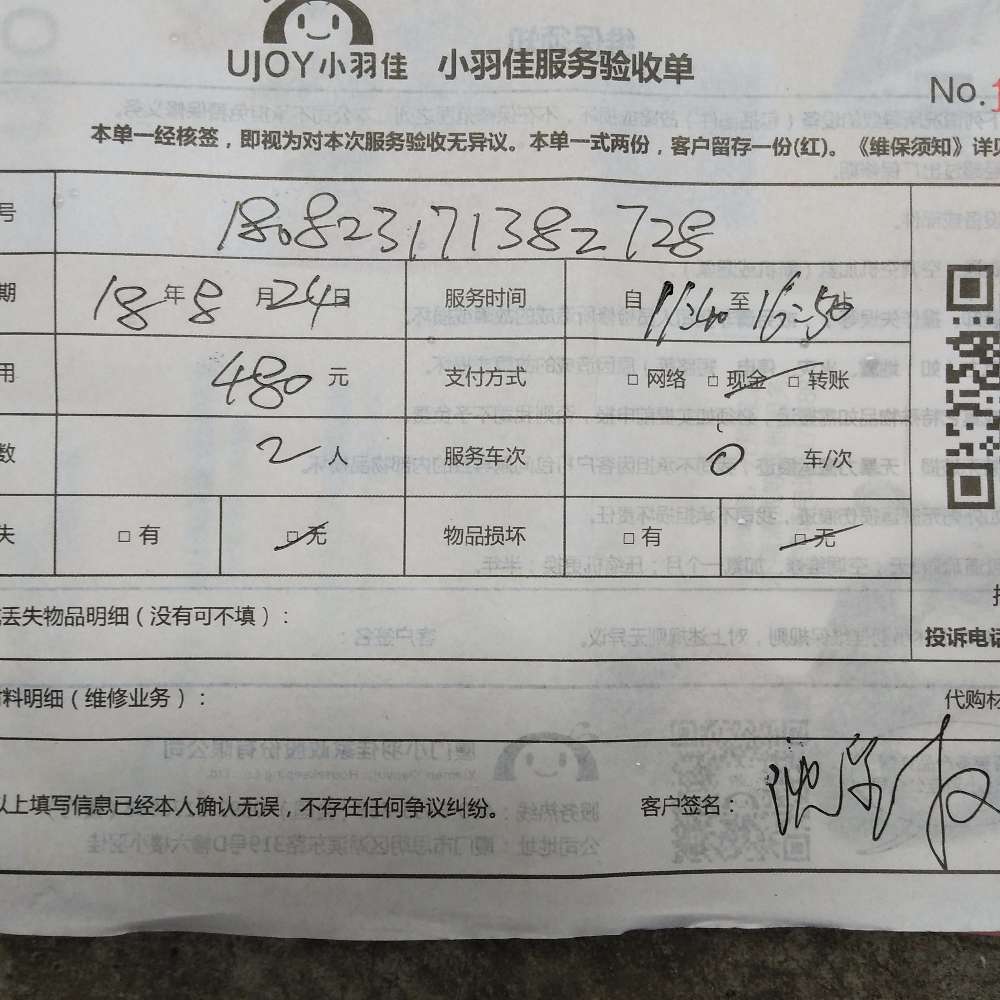 UJOY小羽佳 小羽佳服务验收单
No.1
本单一经核签，即视为对本次服务验收无异议。本单一式两份，客户留存一份(红)。《维保须知》详见
号 180823171382728
期 18年8月24日 服务时间 自11:40至16:50止
用 480元 支付方式 □网络 □现金 □转账
数 2人 服务车次 0 车/次
失 □有 □无 物品损坏 □有 □无
丢失物品明细(没有可不填)：
投诉电话
料明细(维修业务)：
代购材
以上填写信息已经本人确认无误，不存在任何争议纠纷。 客户签名：